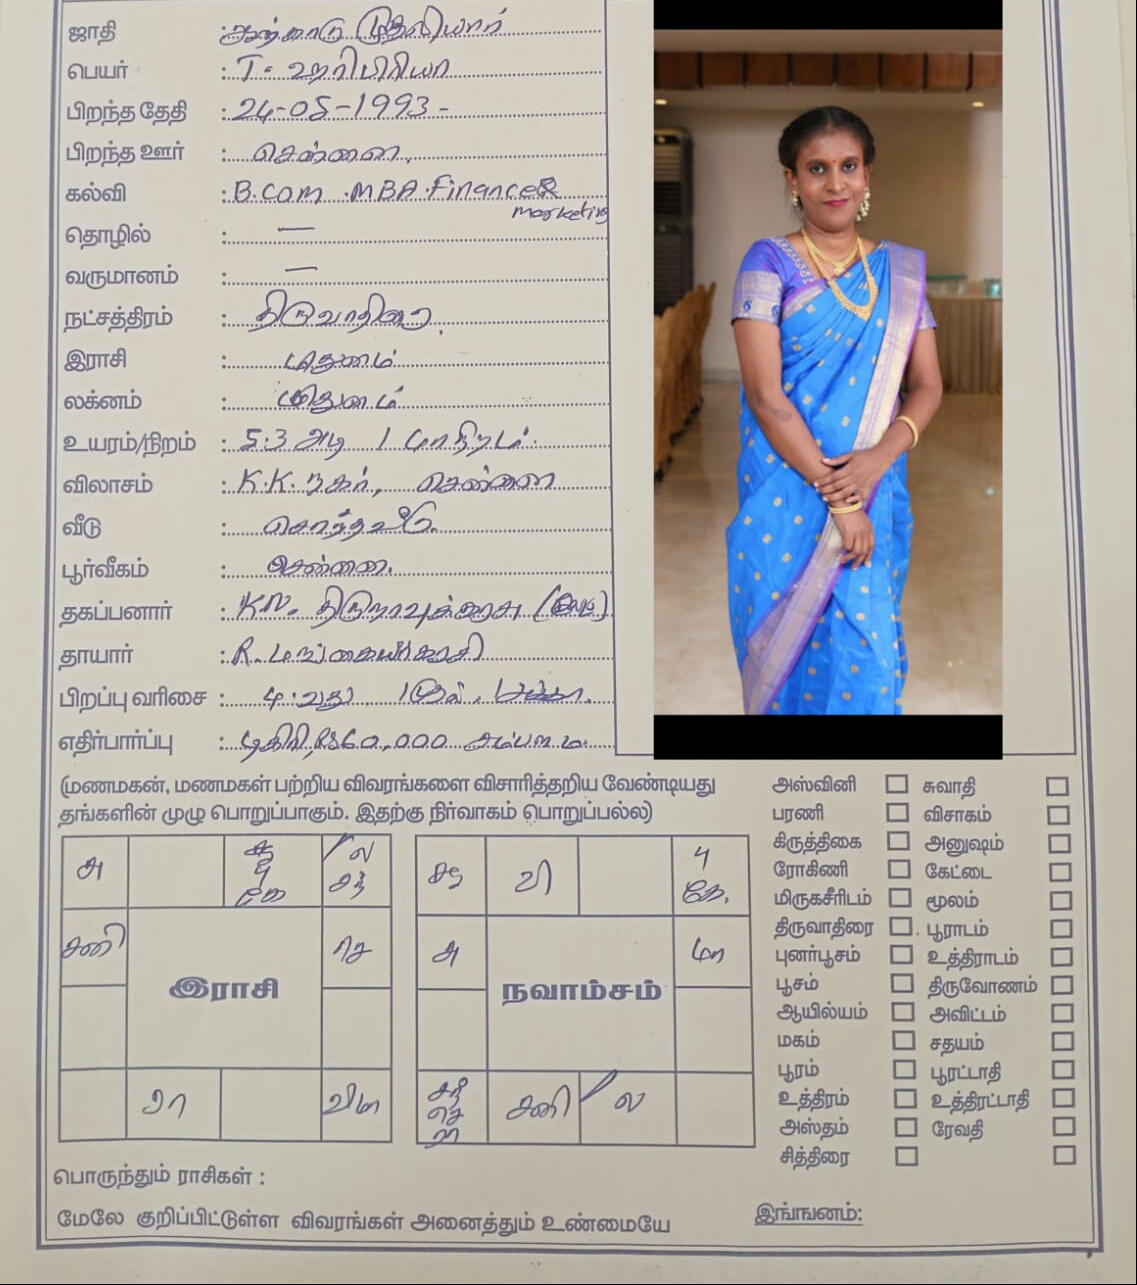 ஜாதி : ஆற்காடு முதலியார்
பெயர் : T. ஹரிபிரியா
பிறந்த தேதி : 24-05-1993 -
பிறந்த ஊர் : சென்னை.
கல்வி : B.com. MBA. Finance &
marketing
தொழில் : —
வருமானம் : —
நட்சத்திரம் : திருவாதிரை
இராசி : மிதுனம்
லக்னம் : மிதுனம்
உயரம்/நிறம் : 5.3 அடி / மாநிறம்.
விலாசம் : K.K. நகர், சென்னை
வீடு : சொந்தவீடு.
பூர்வீகம் : சென்னை.
தகப்பனார் : K.N. திருநாவுக்கரசு
தாயார் : R. மங்கையர்கரசி
பிறப்பு வரிசை : வது
எதிர்பார்ப்பு : டிகிரி, Rs 60,000 சம்பளம்.
(மணமகன், மணமகள் பற்றிய விவரங்களை விசாரித்தறிய வேண்டியது
தங்களின் முழு பொறுப்பாகும். இதற்கு நிர்வாகம் பொறுப்பல்ல)
அ
ல
சந்
சனி
செ
ரா
வியா
இராசி
சூ
வி
பு
கே.
அ
மா
சனி
ல
நவாம்சம்
அஸ்வினி சுவாதி
பரணி விசாகம்
கிருத்திகை அனுஷம்
ரோகிணி கேட்டை
மிருகசீரிடம் மூலம்
திருவாதிரை பூராடம்
புனர்பூசம் உத்திராடம்
பூசம் திருவோணம்
ஆயில்யம் அவிட்டம்
மகம் சதயம்
பூரம் பூரட்டாதி
உத்திரம் உத்திரட்டாதி
அஸ்தம் ரேவதி
சித்திரை
பொருந்தும் ராசிகள் :
மேலே குறிப்பிட்டுள்ள விவரங்கள் அனைத்தும் உண்மையே
இங்ஙனம்: